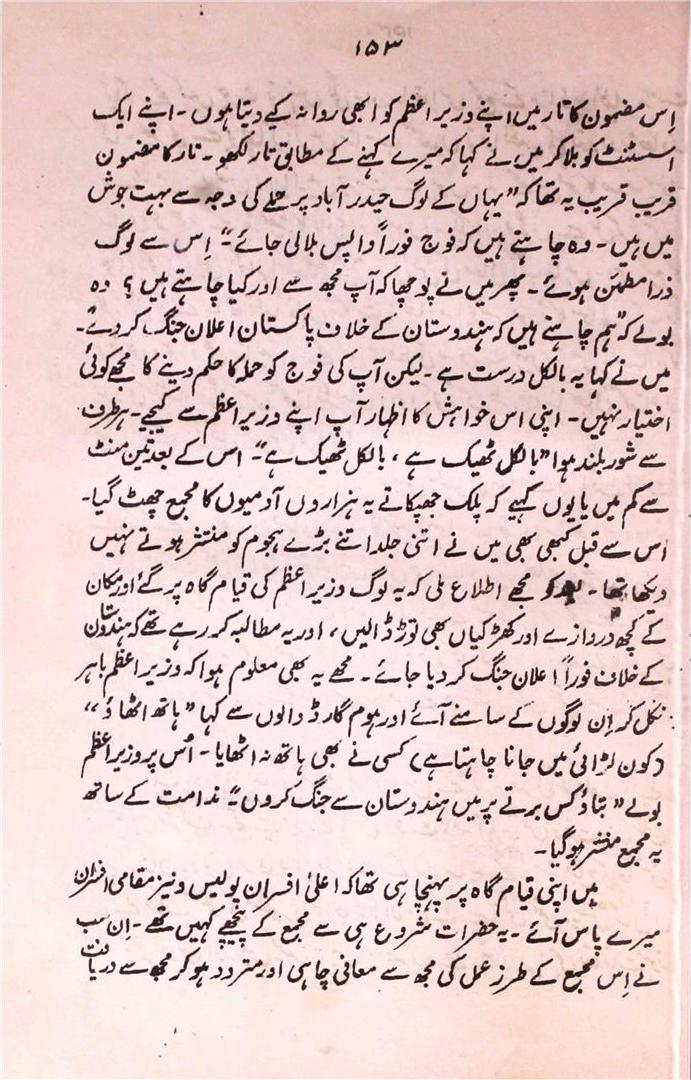 ۱۵۳
اِس مضمون کا تار میں اپنے وزیر اعظم کو ابھی روانہ کیے دیتا ہوں ۔ اپنے ایک
اسسٹنٹ کو بلا کر میں نے کہا کہ میرے کہنے کے مطابق تار لکھو ۔ تار کا مضمون
قریب قریب یہ تھا کہ ”یہاں کے لوگ حیدر آباد پر حملے کی وجہ سے بہت جوش
میں ہیں ۔ وہ چاہتے ہیں کہ فوج فوراً واپس بلالی جائے“۔ اِس سے لوگ
ذرا مطمئن ہوئے ۔ پھر میں نے پوچھا کہ آپ مجھ سے اور کیا چاہتے ہیں ؟ وہ
بولے کہ ”ہم چاہتے ہیں کہ ہندوستان کے خلاف پاکستان اعلان جنگ کر دے“۔
میں نے کہا یہ بالکل درست ہے ۔ لیکن آپ کی فوج کو حملہ کا حکم دینے کا مجھے کوئی
اختیار نہیں ۔ اپنی اس خواہش کا اظہار آپ اپنے وزیر اعظم سے کیجیے ۔ ہر طرف
سے شور بلند ہوا ”بالکل ٹھیک ہے ، بالکل ٹھیک ہے“۔ اس کے بعد تین منٹ
سے کم میں یا یوں کہیے کہ پلک جھپکاتے یہ ہزاروں آدمیوں کا مجمع چھٹ گیا ۔
اس سے قبل کبھی بھی میں نے اتنی جلد اتنے بڑے ہجوم کو منتشر ہوتے نہیں
دیکھا تھا ۔ بعد کو مجھے اطلاع ملی کہ یہ لوگ وزیر اعظم کی قیام گاہ پر گئے اور مکان
کے کچھ دروازے اور کھڑکیاں بھی توڑ ڈالیں ، اور یہ مطالبہ کر رہے تھے کہ ہندوستان
کے خلاف فوراً اعلان جنگ کر دیا جائے ۔ مجھے یہ بھی معلوم ہوا کہ وزیر اعظم باہر
نکل کر اِن لوگوں کے سامنے آئے اور ہوم گارڈ والوں سے کہا ”ہاتھ اٹھاؤ“
(کون لڑائی میں جانا چاہتا ہے) کسی نے بھی ہاتھ نہ اٹھایا ۔ اُس پر وزیر اعظم
بولے ”بتاؤ کس برتے پر میں ہندوستان سے جنگ کروں“۔ ندامت کے ساتھ
یہ مجمع منتشر ہو گیا ۔
میں اپنی قیام گاہ پر پہنچا ہی تھا کہ اعلیٰ افسران پولیس و نیز مقامی افسران
میرے پاس آئے ۔ یہ حضرات شروع ہی سے مجمع کے پیچھے کہیں تھے ۔ اِن سب
نے اِس مجمع کے طرز عمل کی مجھ سے معافی چاہی اور متردد ہو کر مجھ سے دریافت